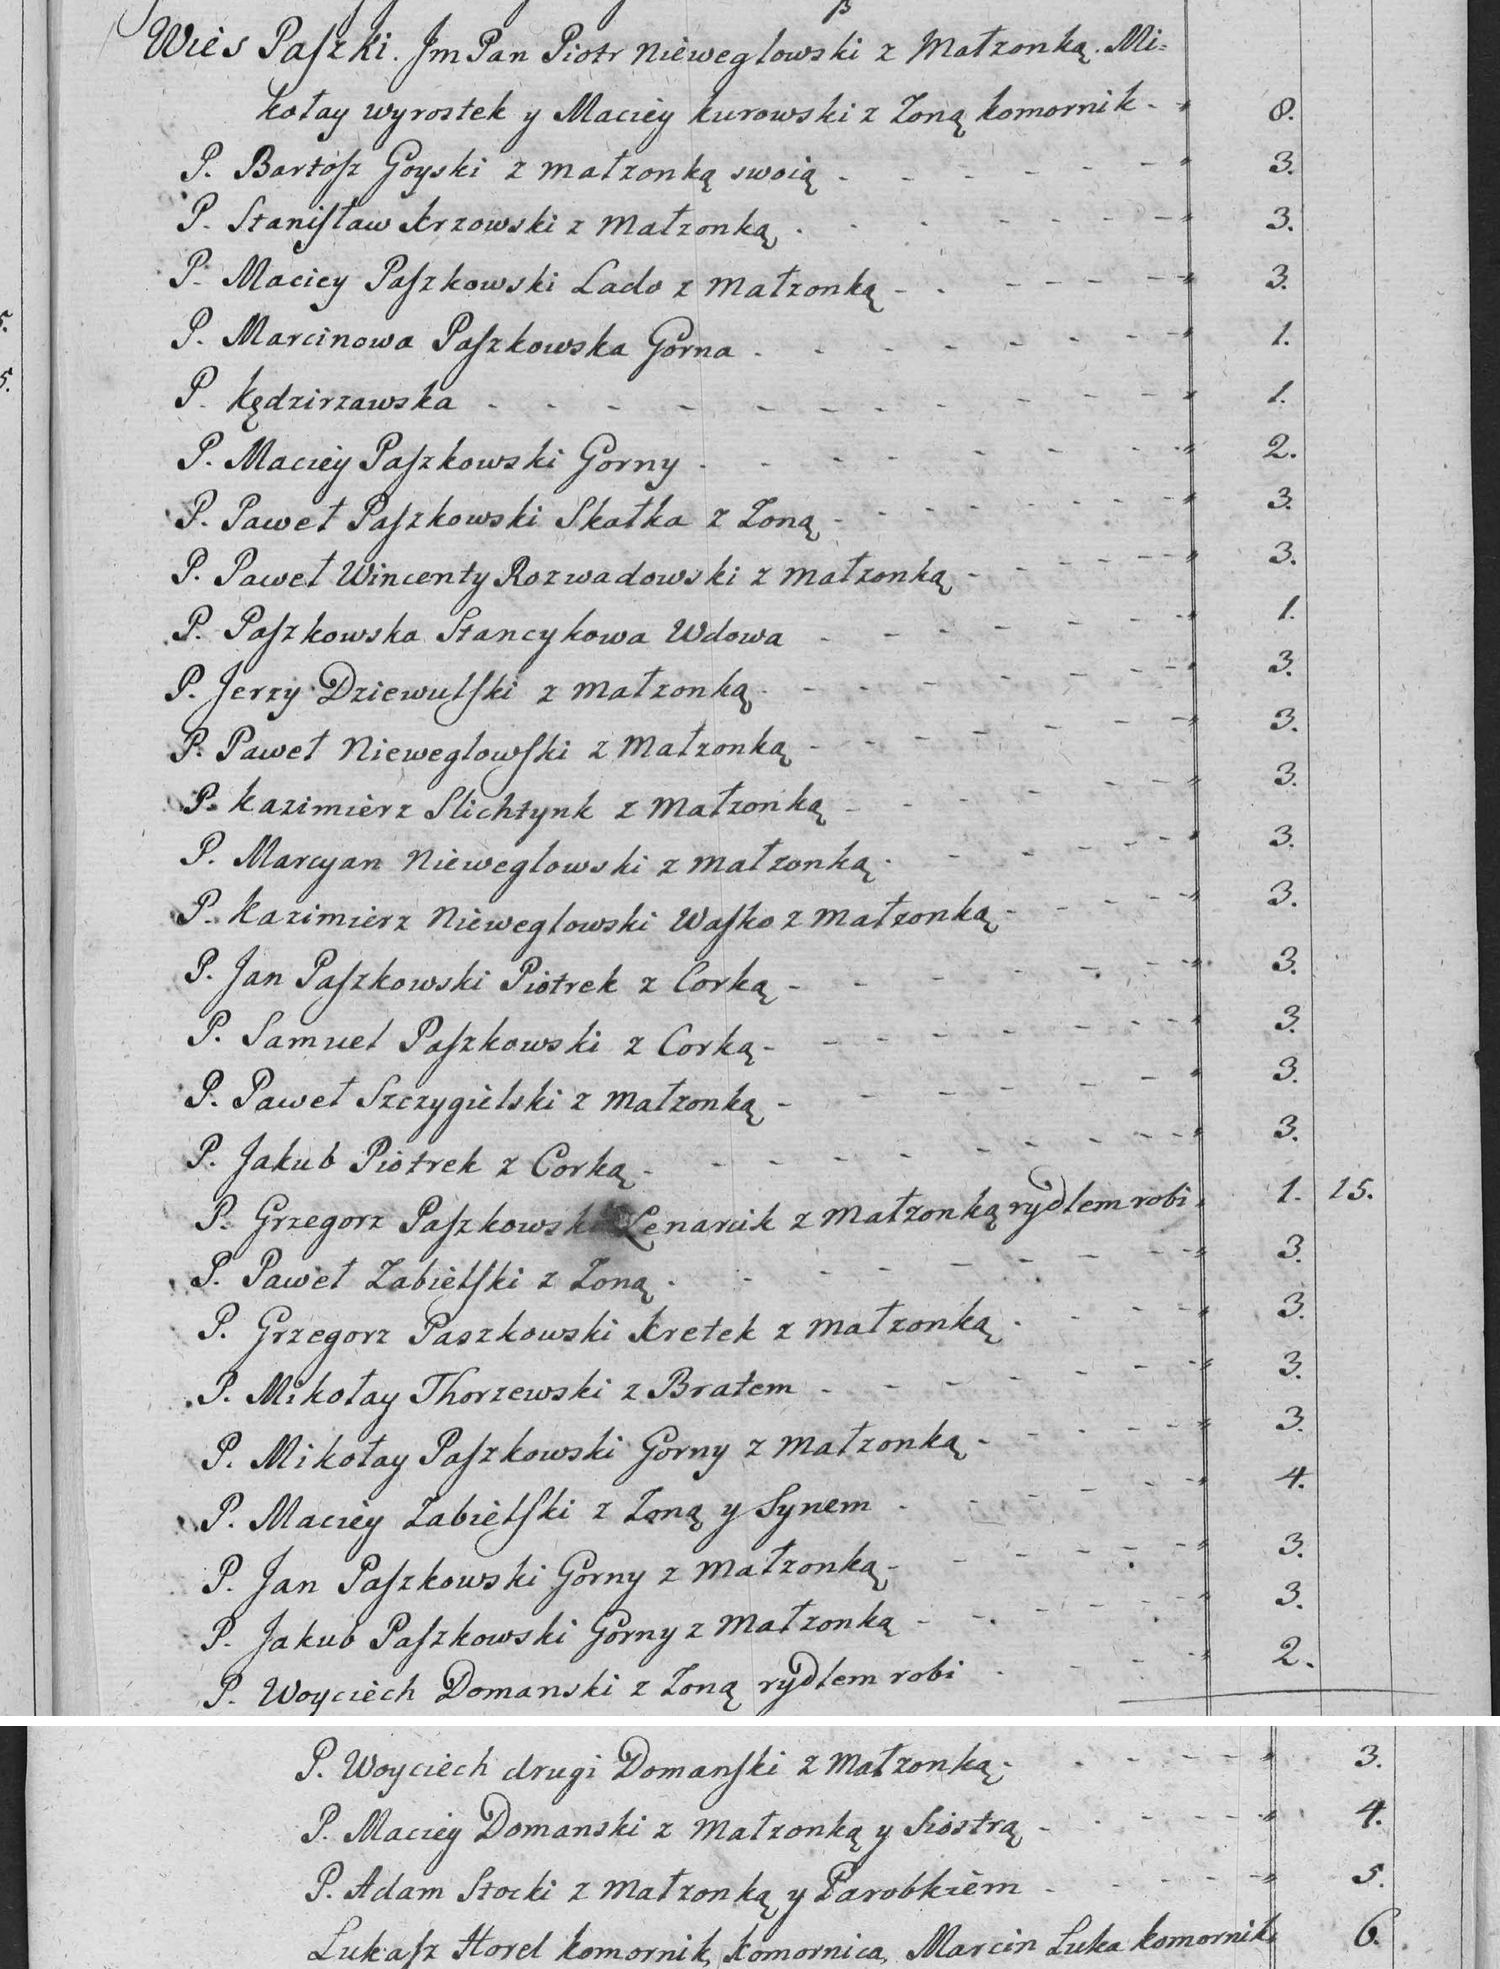 Wies Paſzki. Jm Pan Piotr Nieweglowski z Małzonką. Mi=
kołay wyrostek y Maciey kurowski z Zoną komornik 8.
P. Bartosz Goyski z małzonką swoią 3.
P. Staniſław Krzowski z Małzonką 3.
P. Maciey Paſzkowski Lado z małzonką 3.
P. Marcinowa Paſzkowska Gorna 1.
P. Kędzirzawska 1.
P. Maciey Paſzkowski Gorny 2.
P. Paweł Paſzkowski Skałka z Zoną 3.
P. Paweł Wincenty Rozwadowski z małzonką 3.
P. Paſzkowska Stancykowa Wdowa 1.
P. Jerzy Dziewulſki z małzonką 3.
P. Paweł Nieweglowſki z Małzonką 3.
P. Kazimierz Slichtynk z Małzonką 3.
P. Marcyan Nieweglowski z małzonką 3.
P. Kazimierz Nieweglowski Waſko z małzonką 3.
P. Jan Paſzkowski Piotrek z Corką 3.
P. Samuel Paſzkowski z Corką 3.
P. Paweł Szczygielski z małzonką 3.
P. Jakub Piotrek z Corką 3.
P. Grzegorz Paſzkowski Lenarcik z małzonką rydlem robi 1. 15.
P. Paweł Zabielſki z Zoną 3.
P. Grzegorz Paszkowski Kretek z małzonką 3.
P. Mikołay Thorzewski z Bratem 3.
P. Mikołay Paſzkowski Gorny z małzonką 3.
P. Maciey Zabielſki z Zoną y Synem 4.
P. Jan Paſzkowski Gorny z małzonką 3.
P. Jakub Paſzkowski Gorny z małzonką 3.
P. Woyciech Domanski z Zoną rydlem robi 2.
P. Woyciech drugi Domanſki z małzonką 3.
P. Maciey Domanski z małzonką y Siostrą 4.
P. Adam Stocki z małzonką y Parobkiem 5.
Lukaſz Horel komornik, komornica, Marcin Luka komornik 6.